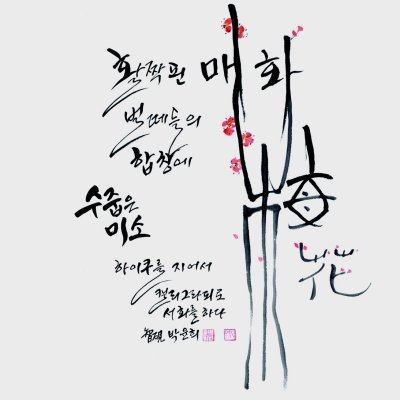 활짝핀 매화
벌떼들의
합창에
수줍은
미소
梅花
하이쿠를 지어서
캘리그라피로
서화를 하다
박윤희